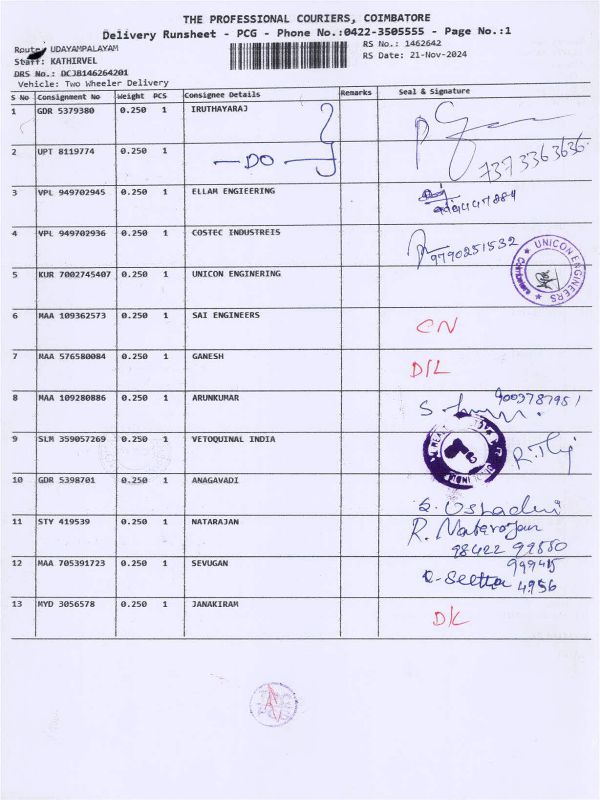 THE PROFESSIONAL COURIERS, COIMBATORE
Delivery Runsheet - PCG - Phone No.:0422-3505555 - Page No.:1
Route: UDAYAMPALAYAM
RS No.: 1462642
Staff: KATHIRVEL
RS Date: 21-Nov-2024
DRS No.: DCJB146264201
Vehicle: Two Wheeler Delivery
S No Consignment No Weight PCS Consignee Details Remarks Seal & Signature
1 GDR 5379380 0.250 1 IRUTHAYARAJ
2 UPT 8119774 0.250 1 -DO- 7373363636
3 VPL 949702945 0.250 1 ELLAM ENGIEERING
4 VPL 949702936 0.250 1 COSTEC INDUSTREIS 9790251532
5 KUR 7002745407 0.250 1 UNICON ENGINERING UNICON ENGINEERS
6 MAA 109362573 0.250 1 SAI ENGINEERS CN
7 MAA 576580084 0.250 1 GANESH D/L
8 MAA 109280886 0.250 1 ARUNKUMAR 9003787951
9 SLM 359057269 0.250 1 VETOQUINAL INDIA
10 GDR 5398701 0.250 1 ANAGAVADI
11 STY 419539 0.250 1 NATARAJAN R. Natarajan
98422 92550
12 MAA 705391723 0.250 1 SEVUGAN 999415
4956
13 MYD 3056578 0.250 1 JANAKIRAM D/L